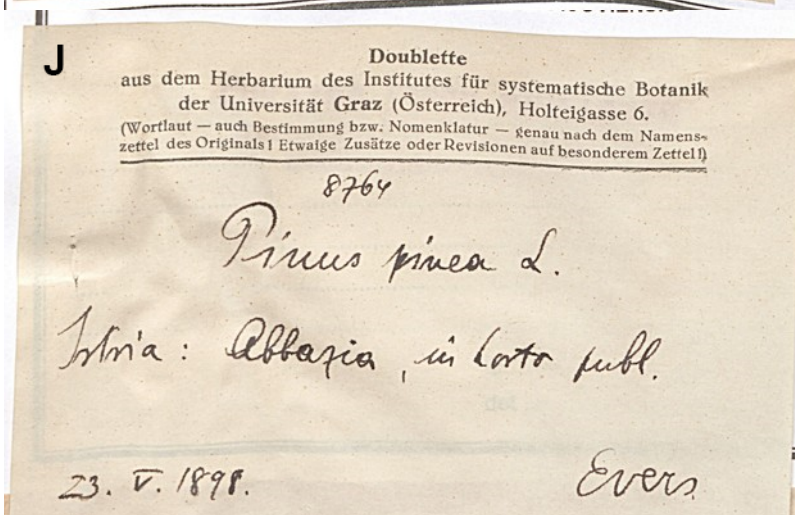 J
Doublette
aus dem Herbarium des Institutes für systematische Botanik
der Universität Graz (Österreich), Holteigasse 6.
(Wortlaut — auch Bestimmung bzw. Nomenklatur — genau nach dem Namens-
zettel des Originals! Etwaige Zusätze oder Revisionen auf besonderem Zettel!)
8764
Pinus pinea L.
Istria: Abbazia, in horto publ.
23. V. 1898.
Evers